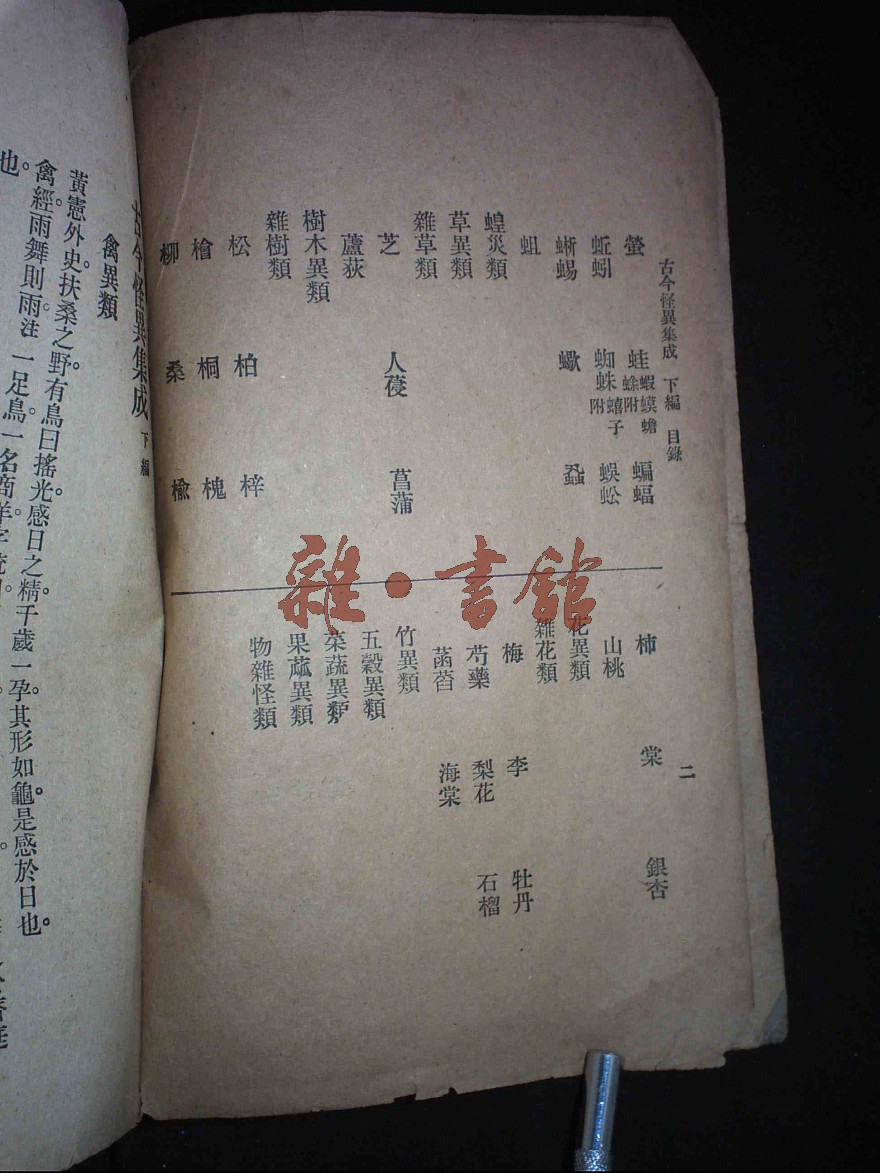 古今怪異集成 下編 目錄
二
螢 蛙 蝦蟆蟾蜍附 蝙蝠
蚯蚓 蜘蛛 蟢子附 蜈蚣
蜥蜴 蠍 蝨
蛆
蝗災類
草異類
雜草類
芝 人葠 菖蒲
蘆荻
樹木異類
雜樹類
松 柏 梓
檜 桐 槐
柳 桑 榆
柿 棠 銀杏
山桃
花異類
雜花類
梅 李 牡丹
芍藥 梨花 石榴
菡萏 海棠
竹異類
五穀異類
菜蔬異類
果蓏異類
物雜怪類
雜·書館
古今怪異集成 下編
禽異類
黃憲外史扶桑之野有鳥曰搖光感日之精千歲一孕其形如龜是感於日也。
禽經雨舞則雨注一足鳥一名商羊字統曰
也。